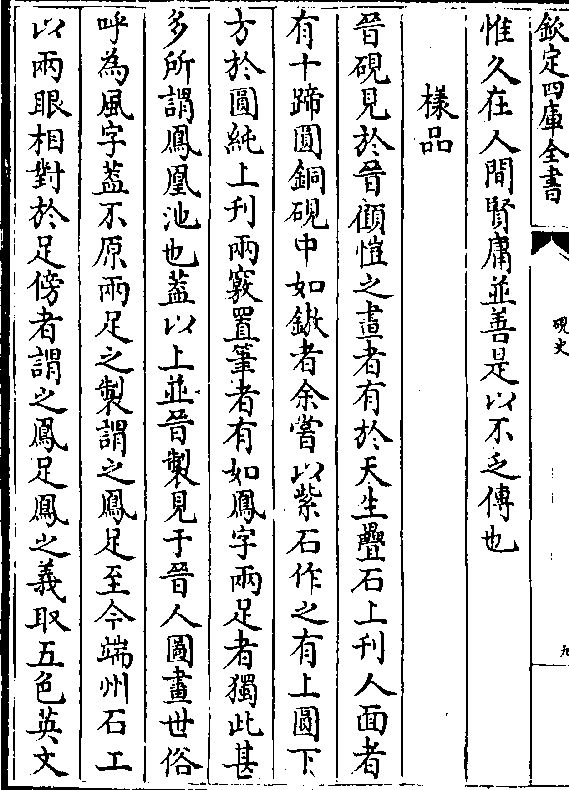 欽定四庫全書
硯史
九
惟久在人間賢庸並善是以不乏傳也
樣品
晉硯見於晉顧愷之畫者有於天生疊石上刋人面者
有十蹄圓銅硯中如鏾者余嘗以紫石作之有上圓下
方於圓純上刋兩竅置筆者有如鳳字兩足者獨此甚
多所謂鳳凰池也葢以上並晉製見于晉人圖畫世俗
呼為風字葢不原兩足之製謂之鳳足至今端州石工
以兩眼相對於足傍者謂之鳳足鳳之義取五色英文